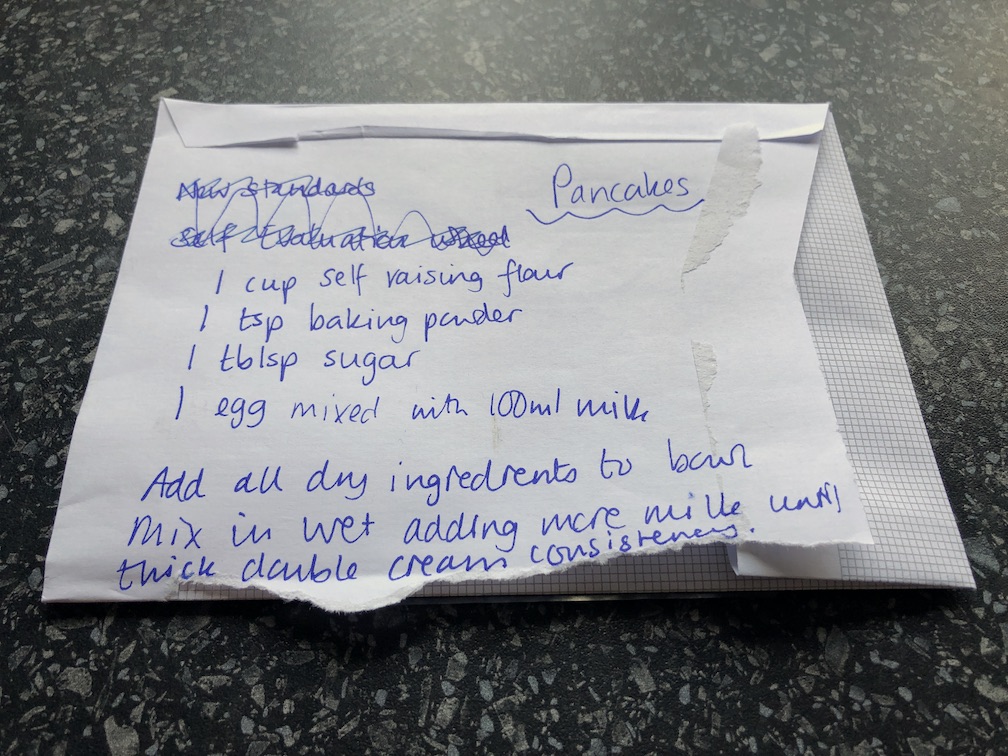 New Standards
Pancakes
Self Evaluation
1 cup self raising flour
1 tsp baking powder
1 tblsp sugar
1 egg mixed with 100ml milk
Add all dry ingredients to bowl
Mix in wet adding more milk until
thick double cream consistency.